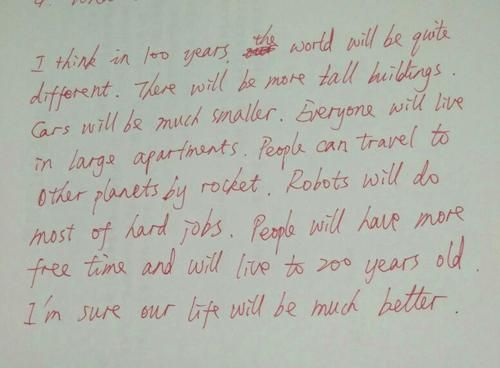 I think in 100 years, the world will be quite
different. There will be more tall buildings.
Cars will be much smaller. Everyone will live
in large apartments. People can travel to
other planets by rocket. Robots will do
most of hard jobs. People will have more
free time and will live to 200 years old.
I'm sure our life will be much better.